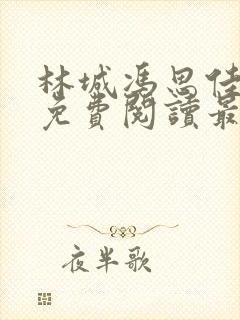 林城馮思佳
免費閱讀最
夜半歌